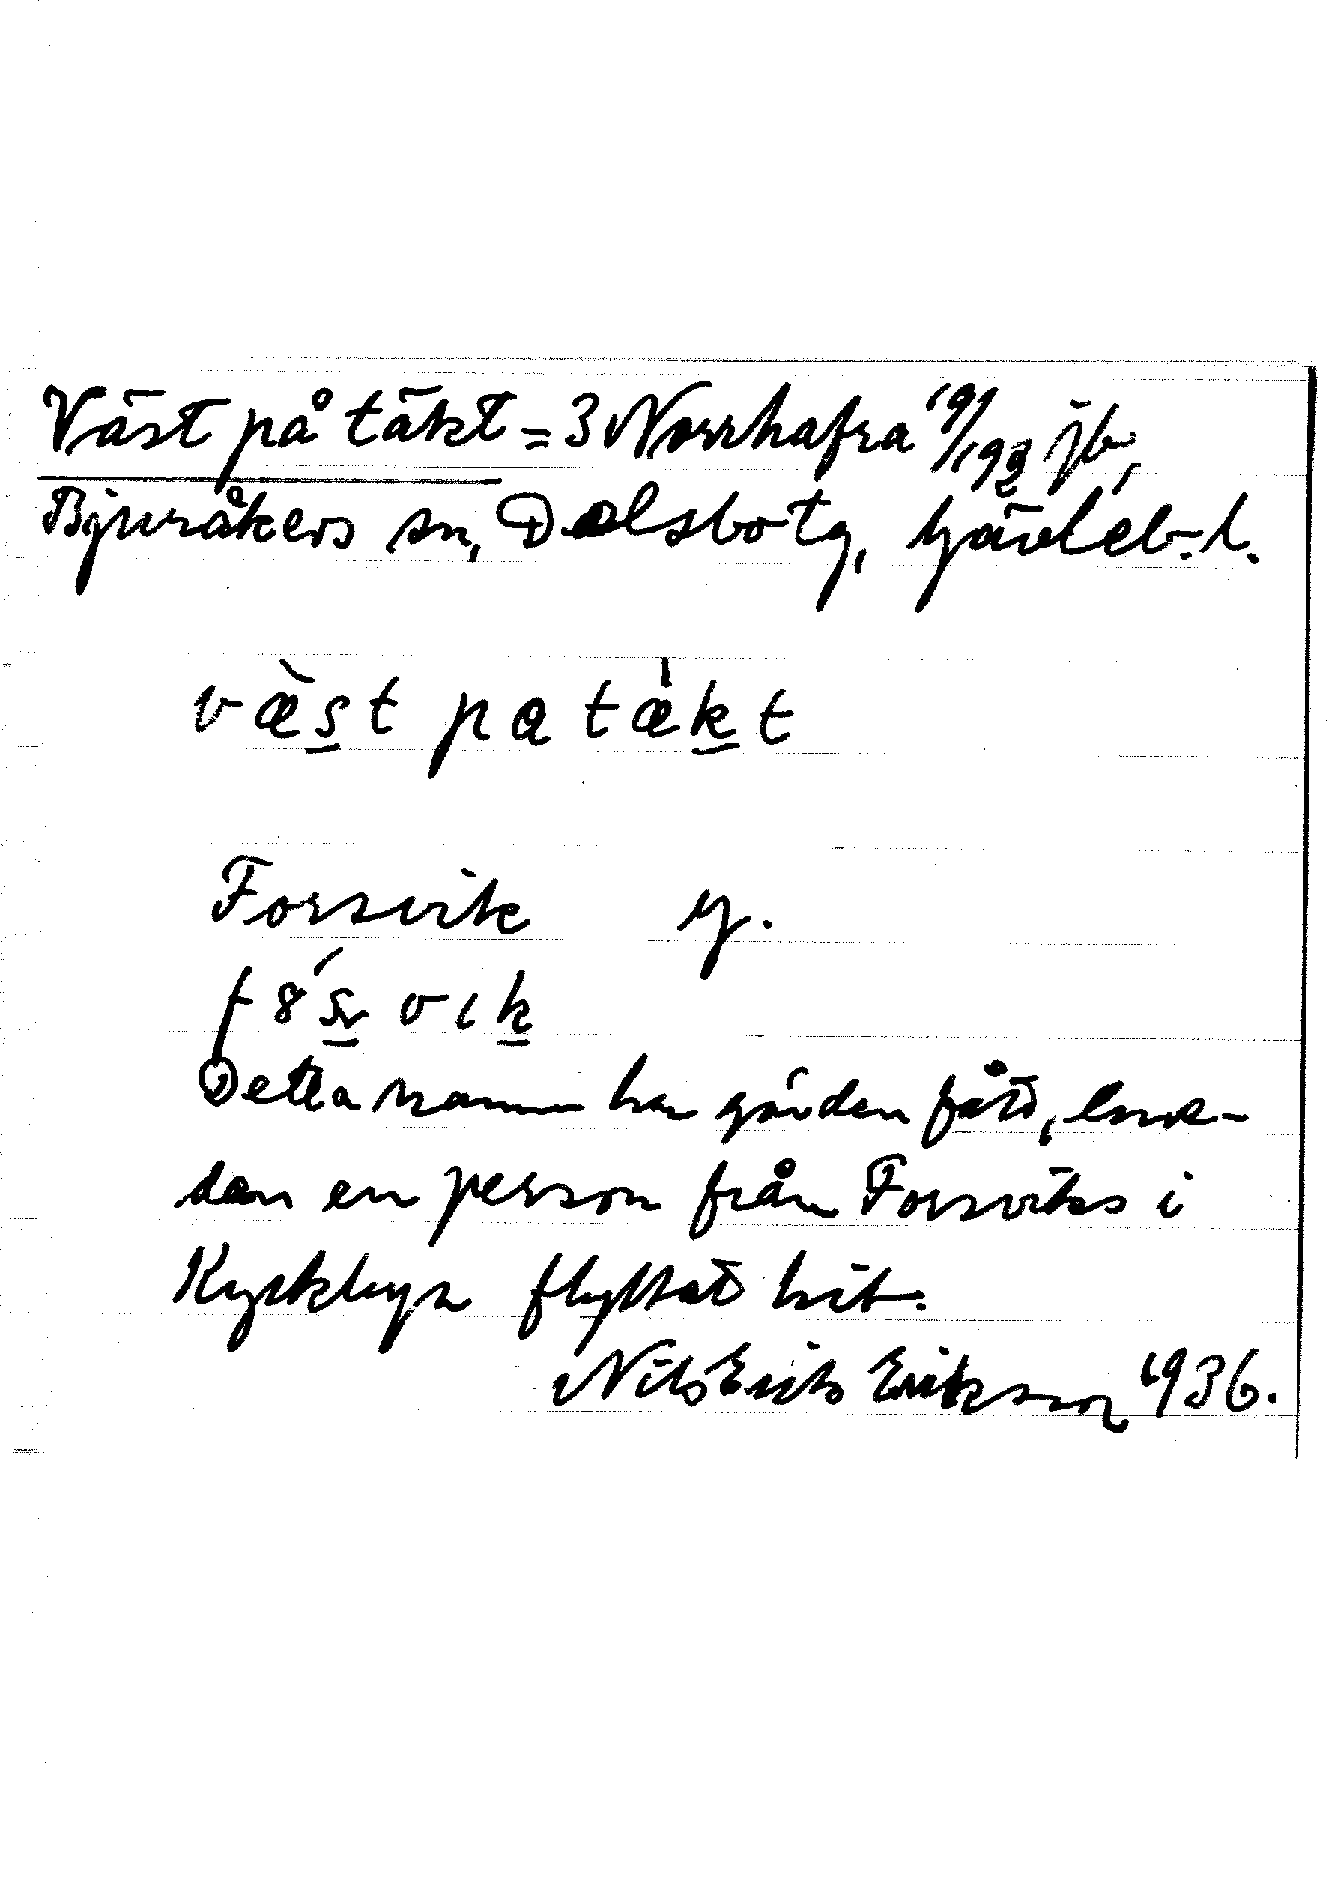 Väst på täkt = 3 Norrhafra 19/192 jb,
Bjuråkers sn, Delsbo tg, Gävleb. l.
væ̀st pa tǽkt
Forsvik y.
Detta namn har gården fått, eme-
dan en person från Forsviks i
Kyrkbyn flyttat hit.
Nils Erik Erikson 1936.